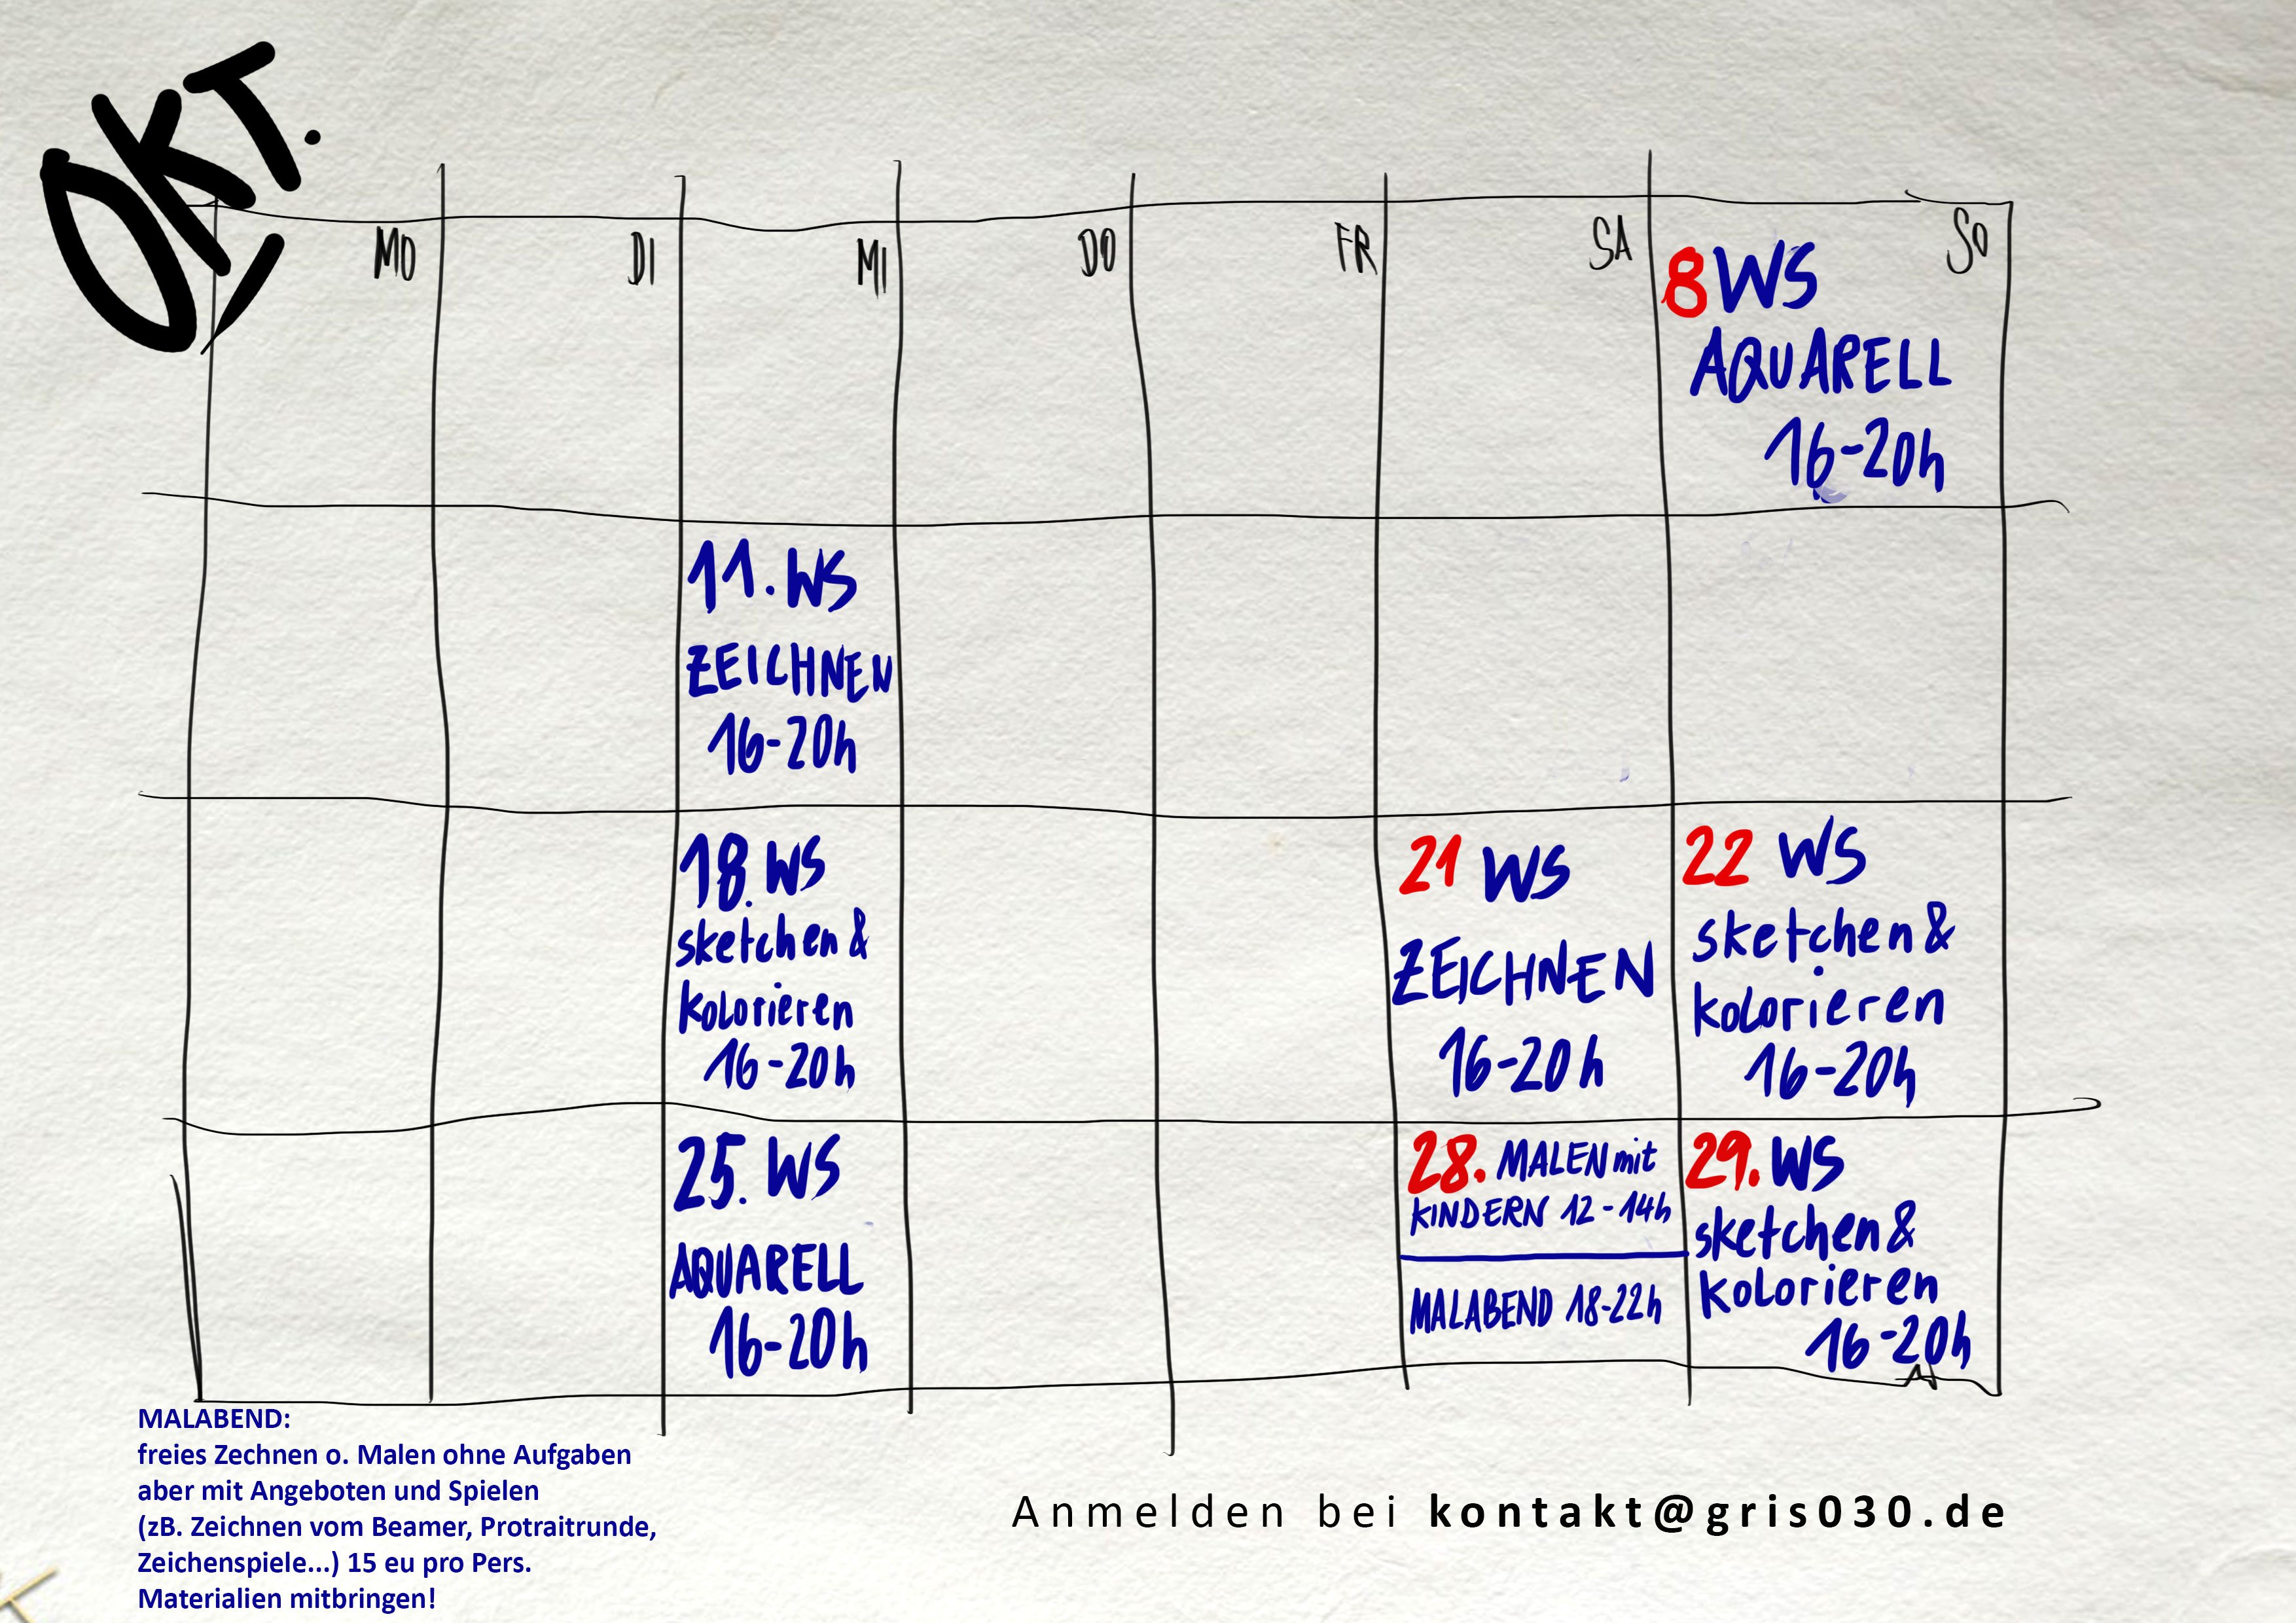 OKT.
MO DI MI DO FR SA SO
8 WS
AQUARELL
16-20h
11. WS
ZEICHNEN
16-20h
18. WS
sketchen &
kolorieren
16-20h
21 WS
ZEICHNEN
16-20h
22 WS
sketchen &
kolorieren
16-20h
25. WS
AQUARELL
16-20h
28. MALEN mit
KINDERN 12-14h
MALABEND 18-22h
29. WS
sketchen &
kolorieren
16-20h
MALABEND:
freies Zechnen o. Malen ohne Aufgaben
aber mit Angeboten und Spielen
(zB. Zeichnen vom Beamer, Protraitrunde,
Zeichenspiele...) 15 eu pro Pers.
Materialien mitbringen!
Anmelden bei kontakt@gris030.de